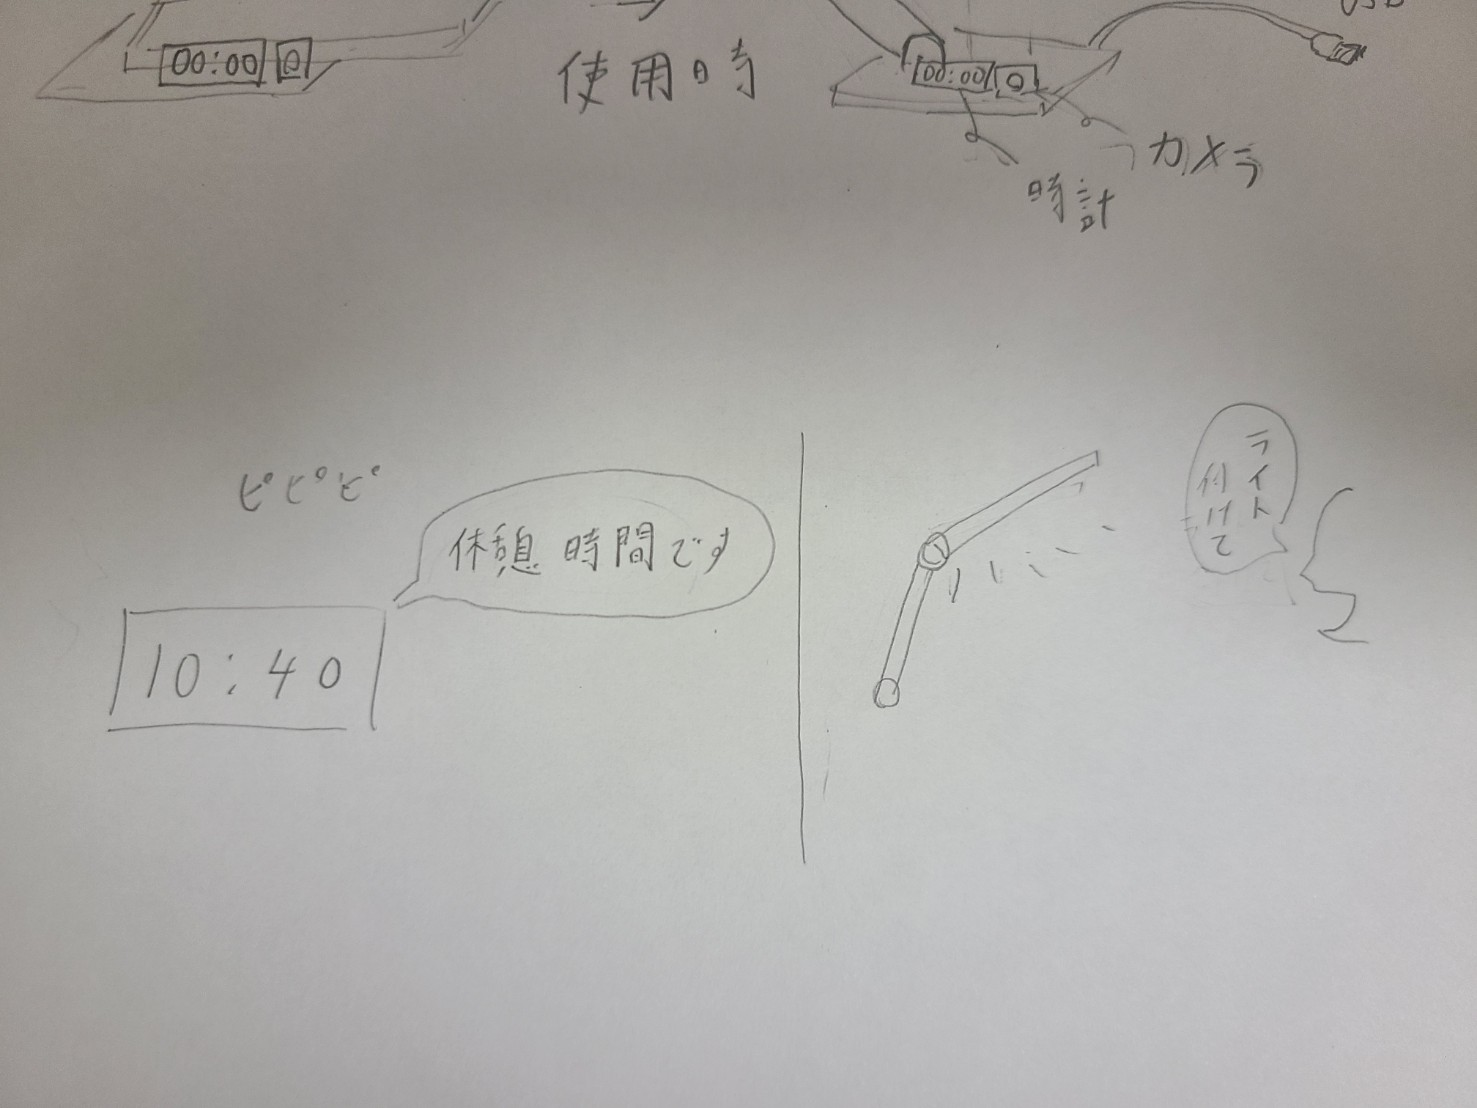 USB
00:00
使用時
00:00
カメラ
時計
ピピピ
休憩時間です
10:40
ライト
付けて